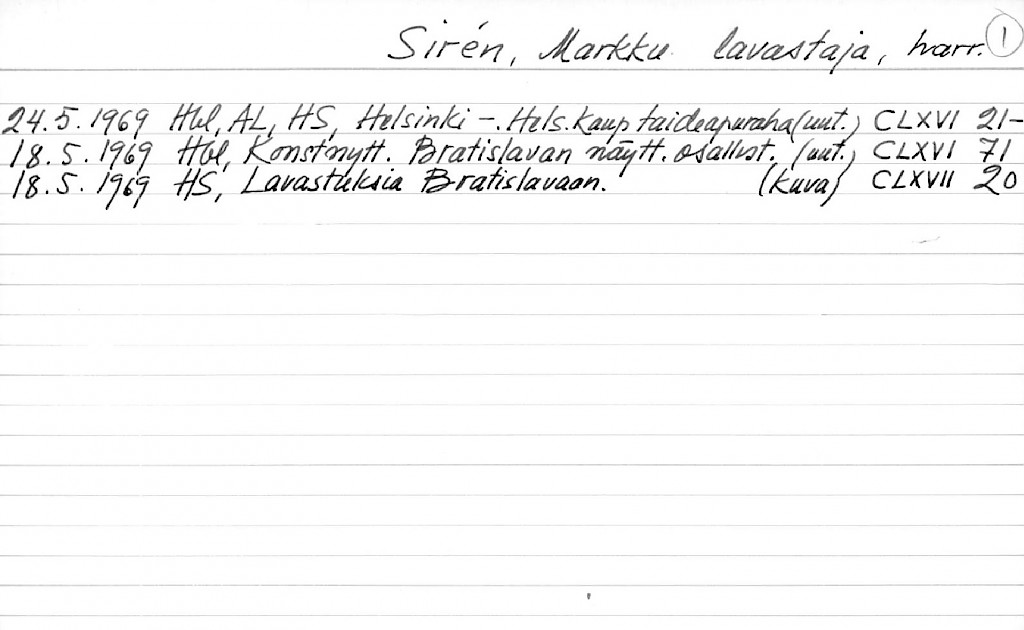 Sirén, Markku lavastaja, harr. 1
24.5.1969 Hbl, AL, HS, Helsinki –. Hels. kaup taideapuraha (uut.) CLXVI 21–
18.5.1969 Hbl, Konstnytt. Bratislavan näytt. osallist. (uut.) CLXVI 71
18.5.1969 HS, Lavastuksia Bratislavaan. (kuva) CLXVII 20